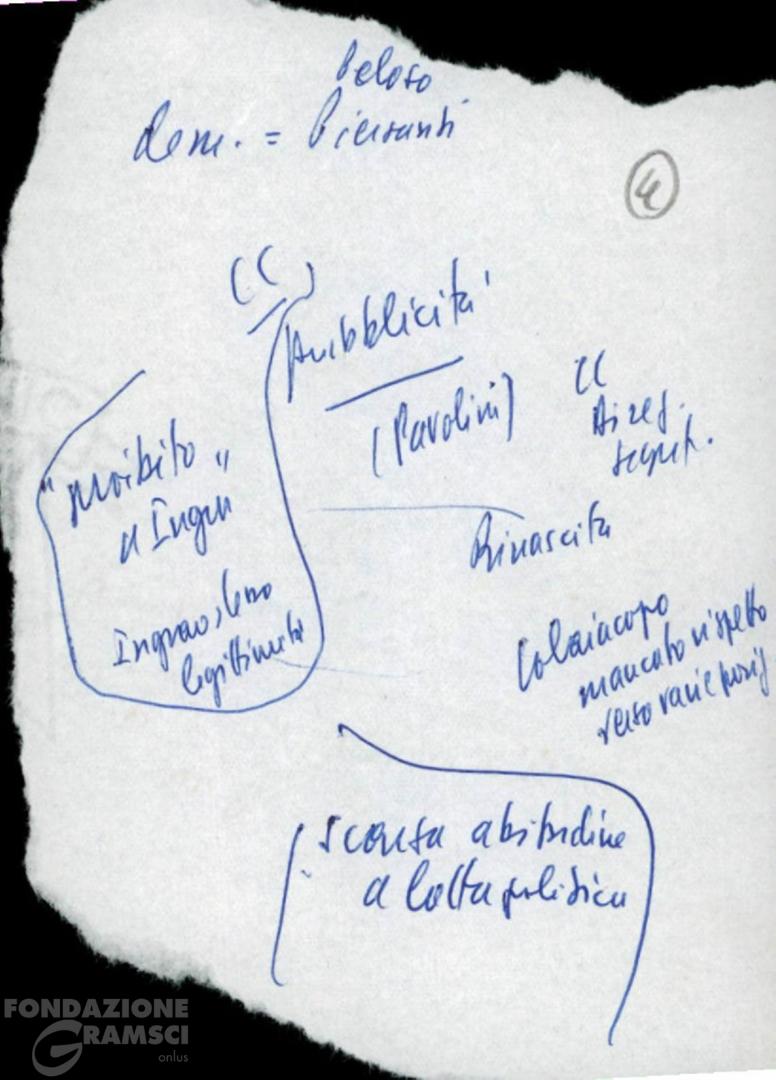 Peloso
dem. = Pieranti
4
CC
Pubblicità
(Pavolini)
CC
Direz.
segret.
"proibito"
a Ingra
Rinascita
Ingrao, leso
legittimità
Colaiacopo
mancato rispetto
verso varie posiz
scarsa abitudine
a lotta politica
FONDAZIONE
GRAMSCI
onlus